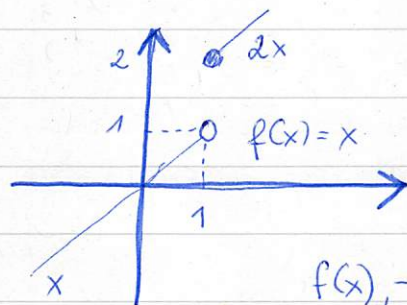 2 2x
1 f(x) = x
1
x
f(x),